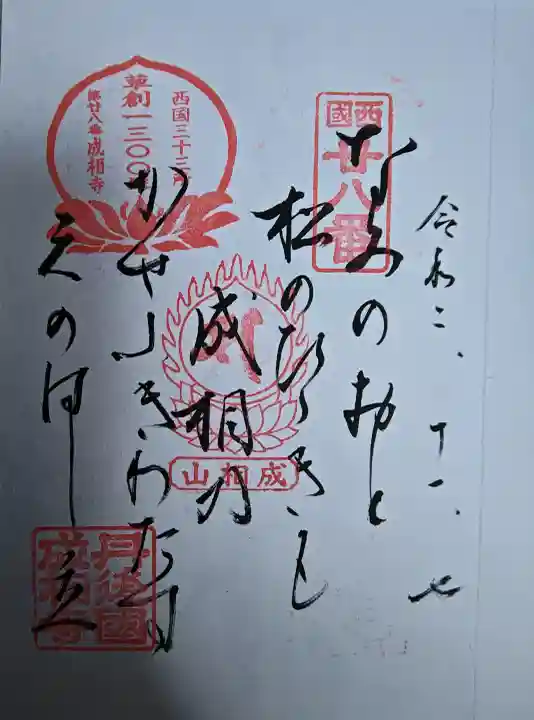 令和二、十一、七
西國
廿八番
なみのおと
松のひゞきも
成相乃
かぜふきわたす
天のはし立
西国三十三所
草創一三〇〇年
第廿八番成相寺
成相山
丹後國
成相寺